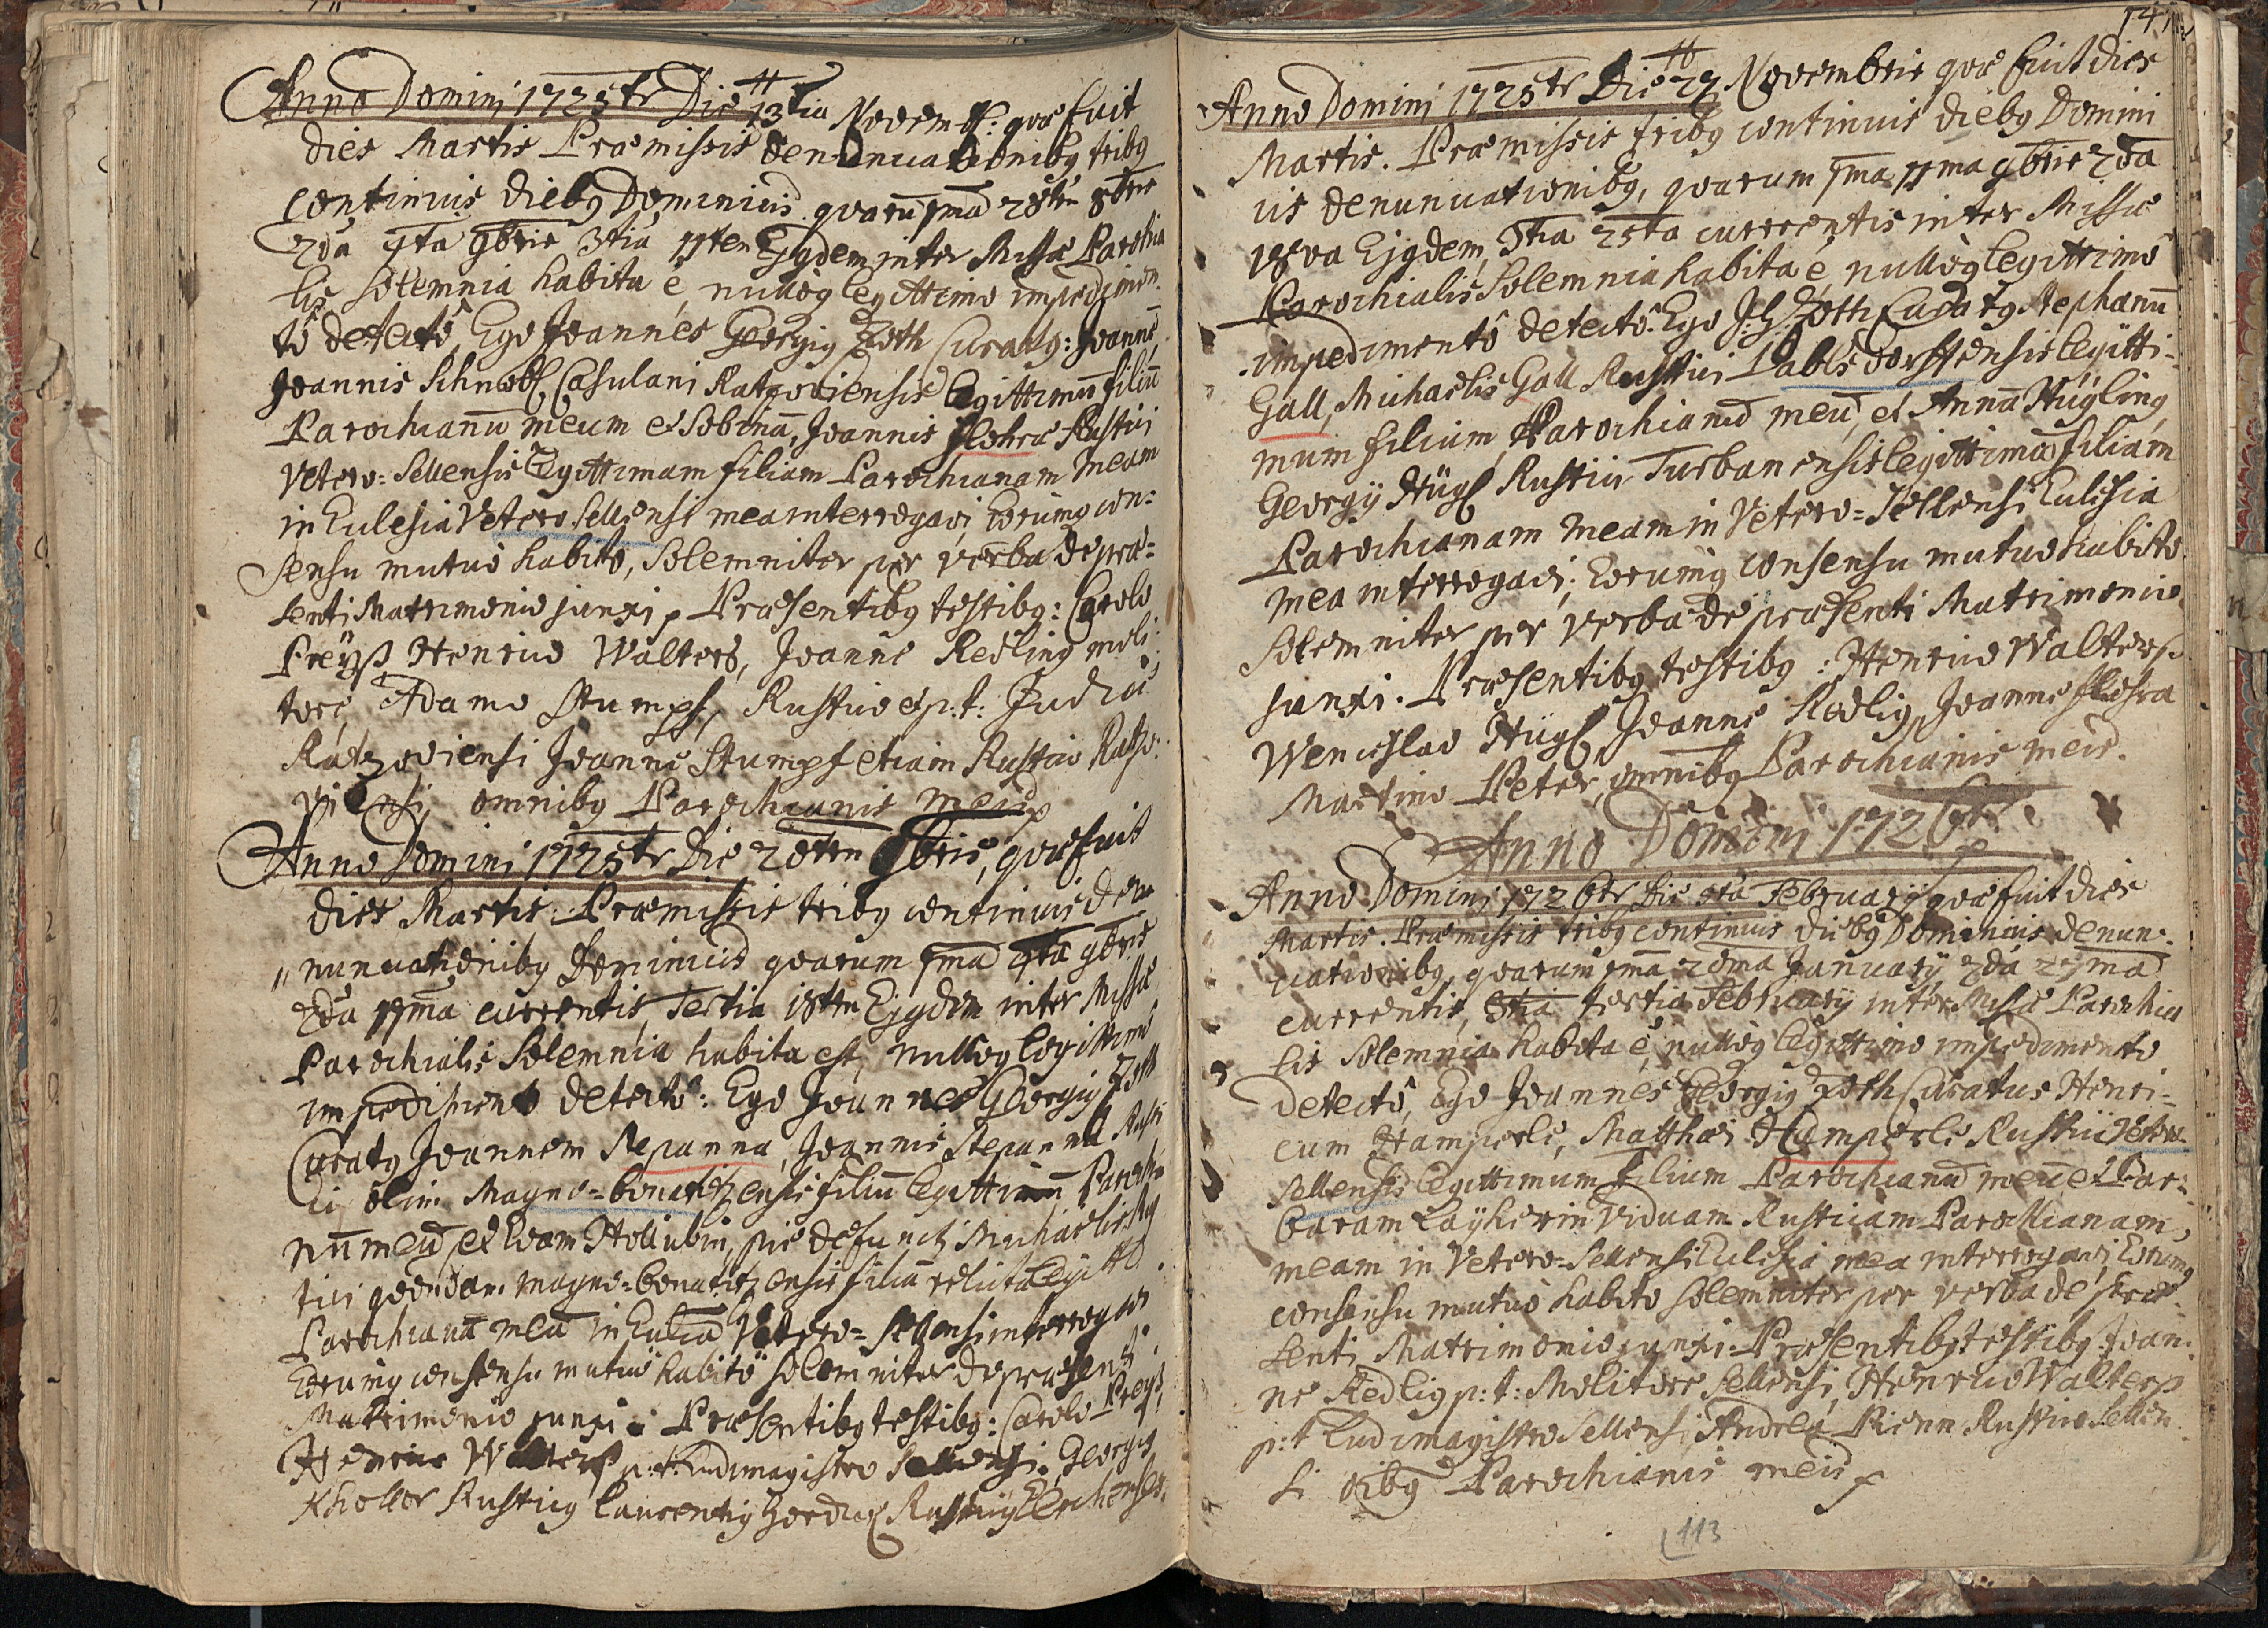 Anno Domini 1725tr Die 13tia Novemb: quæ fuit
dies Martis Præmissis denunuationibg tribg
continuis diebg Dominicis quarū 1ma 28tn 8bris
2da 4ta 9bris 3tia 11ten Ejgdem inter Missæ Parochia
lis Solemnia habita ē, nullôg legittimo impedimen
tô detectô, Ego Joannes Georgig Zoth Curatg: Joannē,
Joannis Schnobl Casulani Ratzoviensis legittimū filiū
Parochianū meum et Sobinā, Joannis flohra Rustici
Vetero=Sellensis legittimam filiam Parochianam meam
in Eulesia Vetero Sellensi mea interrogavi Eorumg con=
sensu mutuo habito, Solemniter per verba de præ=
senti Matrimonio junxi, Præsentibg testibg: Carolo
Preyß Henrico Walters, Joanne Redling moli:
tore, Adamo Stumpf, Rustico et p: t: Judice
Ratzoviensi Joanne Stumpf etiam Rustico Ratzo:
viensi omnibg Parochianis meis
Anno Domini 1725tr Die 20tn 9bris, quæ fuit
dies Martis. Præmissis tribg continuis den
nunuationibg Dominicis quarum 1ma 4ta 9bris
2da 11ma currentis Tertia 18tn Ejgdem inter Missæ
Parochialis Solemnia habita est, nullôg legittimo
impedimento detectô: Ego Joannes Georgig Zoth
Curatg Joannem Stepanna, Joannis Stepanna Rusti
ci olim Magno=bonatizensis filiū legittimū Parochia
nū meū et Evam Hollubin, pie defuncti Michaelis Rus
tici quondam magno=bonatizensis filiā relictā legitt
Parochianā meā in Eulia Vetero=Sellensi interrogavi
Eorumg consensu mutuo habitô solemniter de præsenti
Matrimonio junxi: Præsentibg testibg: Carolo Preyß
Henrico Walters p: t: Ludimagistro Sellensi, Georgig
Kholler Rusticg Laurentig
141
Anno Domini 1725tr Die 27 Novembris quæ fuit dies
Martis. Præmissis tribg continuis diebg Domini
cis denunuationibg, quarum 1ma 11ma 9bris 2da
18va Ejgdem, 3tia 25ta currentis inter Missæ
Parochialis Solemnia habita ē, nullôg legittimô
impedimentô detectô. Ego J: G: Zoth Curatg Stephanū
Gall, Michaelis Gall Rustici Pablsdorffensis legitti=
mum filium, Parochianū meū, et Annā Hügling
Georgÿ Hügl Rustici Turbanensis legittimā filiam
Parochianam meam in Vetero=Sellensi Eulesia
mea interrogavi; Eorumg consensu mutuo habito
Solemniter per Verba de præsenti Matrimonio
junxi. Præsentibg testibg: Henrico Walters
Wenceslao Hügl, Joanne Redlig, Joanne flohra
Martino Peter, omnibg Parochianis meis.
Anno Domini 1726tr
Anno Domini 1726tr Die 5ta Februarÿ quæ fuit dies
Martis. Præmissis tribg continuis diebg Dominicis denun:
ciationibg, quarum 1ma 20ma Januarÿ 2da 27ma
currentis, 3tia tertia Februarÿ inter Missæ Parochia
lis Solemnia habita ē, nullôg legittimo impedimento
detectô, Ego Joannes Georgig Zoth Curatus Henri=
cum Hamperle, Matthæi Hamperle Rustici Vetero
Sellensis legittimum filium Parochianū meū et Bar:
baram Layherin Viduam Rusticam Parochianam,
meam in Vetero=Sellensi Eulesia mea interrogavi, Eorumg
consensu mutuo habito solemniter per verba de præ=
senti Matrimonio junxi. Præsentibg testibg: Joan:
ne Redlig p: t: Molitore Sellensi, Henrico Walters
p: t Ludimagistro Sellensi, Andrea Rienn Rustico Sellen
si oibg Parochianis meis
113